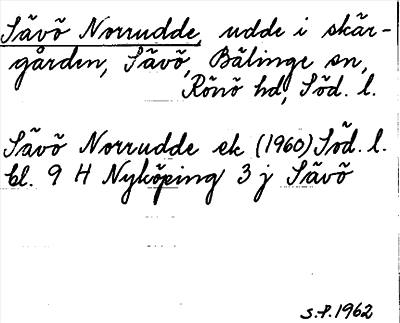 Sävö Norrudde, udde i skär-
gården, Sävö, Bälinge sn,
Rönö hd, Söd. l.
Sävö Norrudde ek (1960) Söd. l.
bl. 9 H Nyköping 3 j Sävö
s.f. 1962